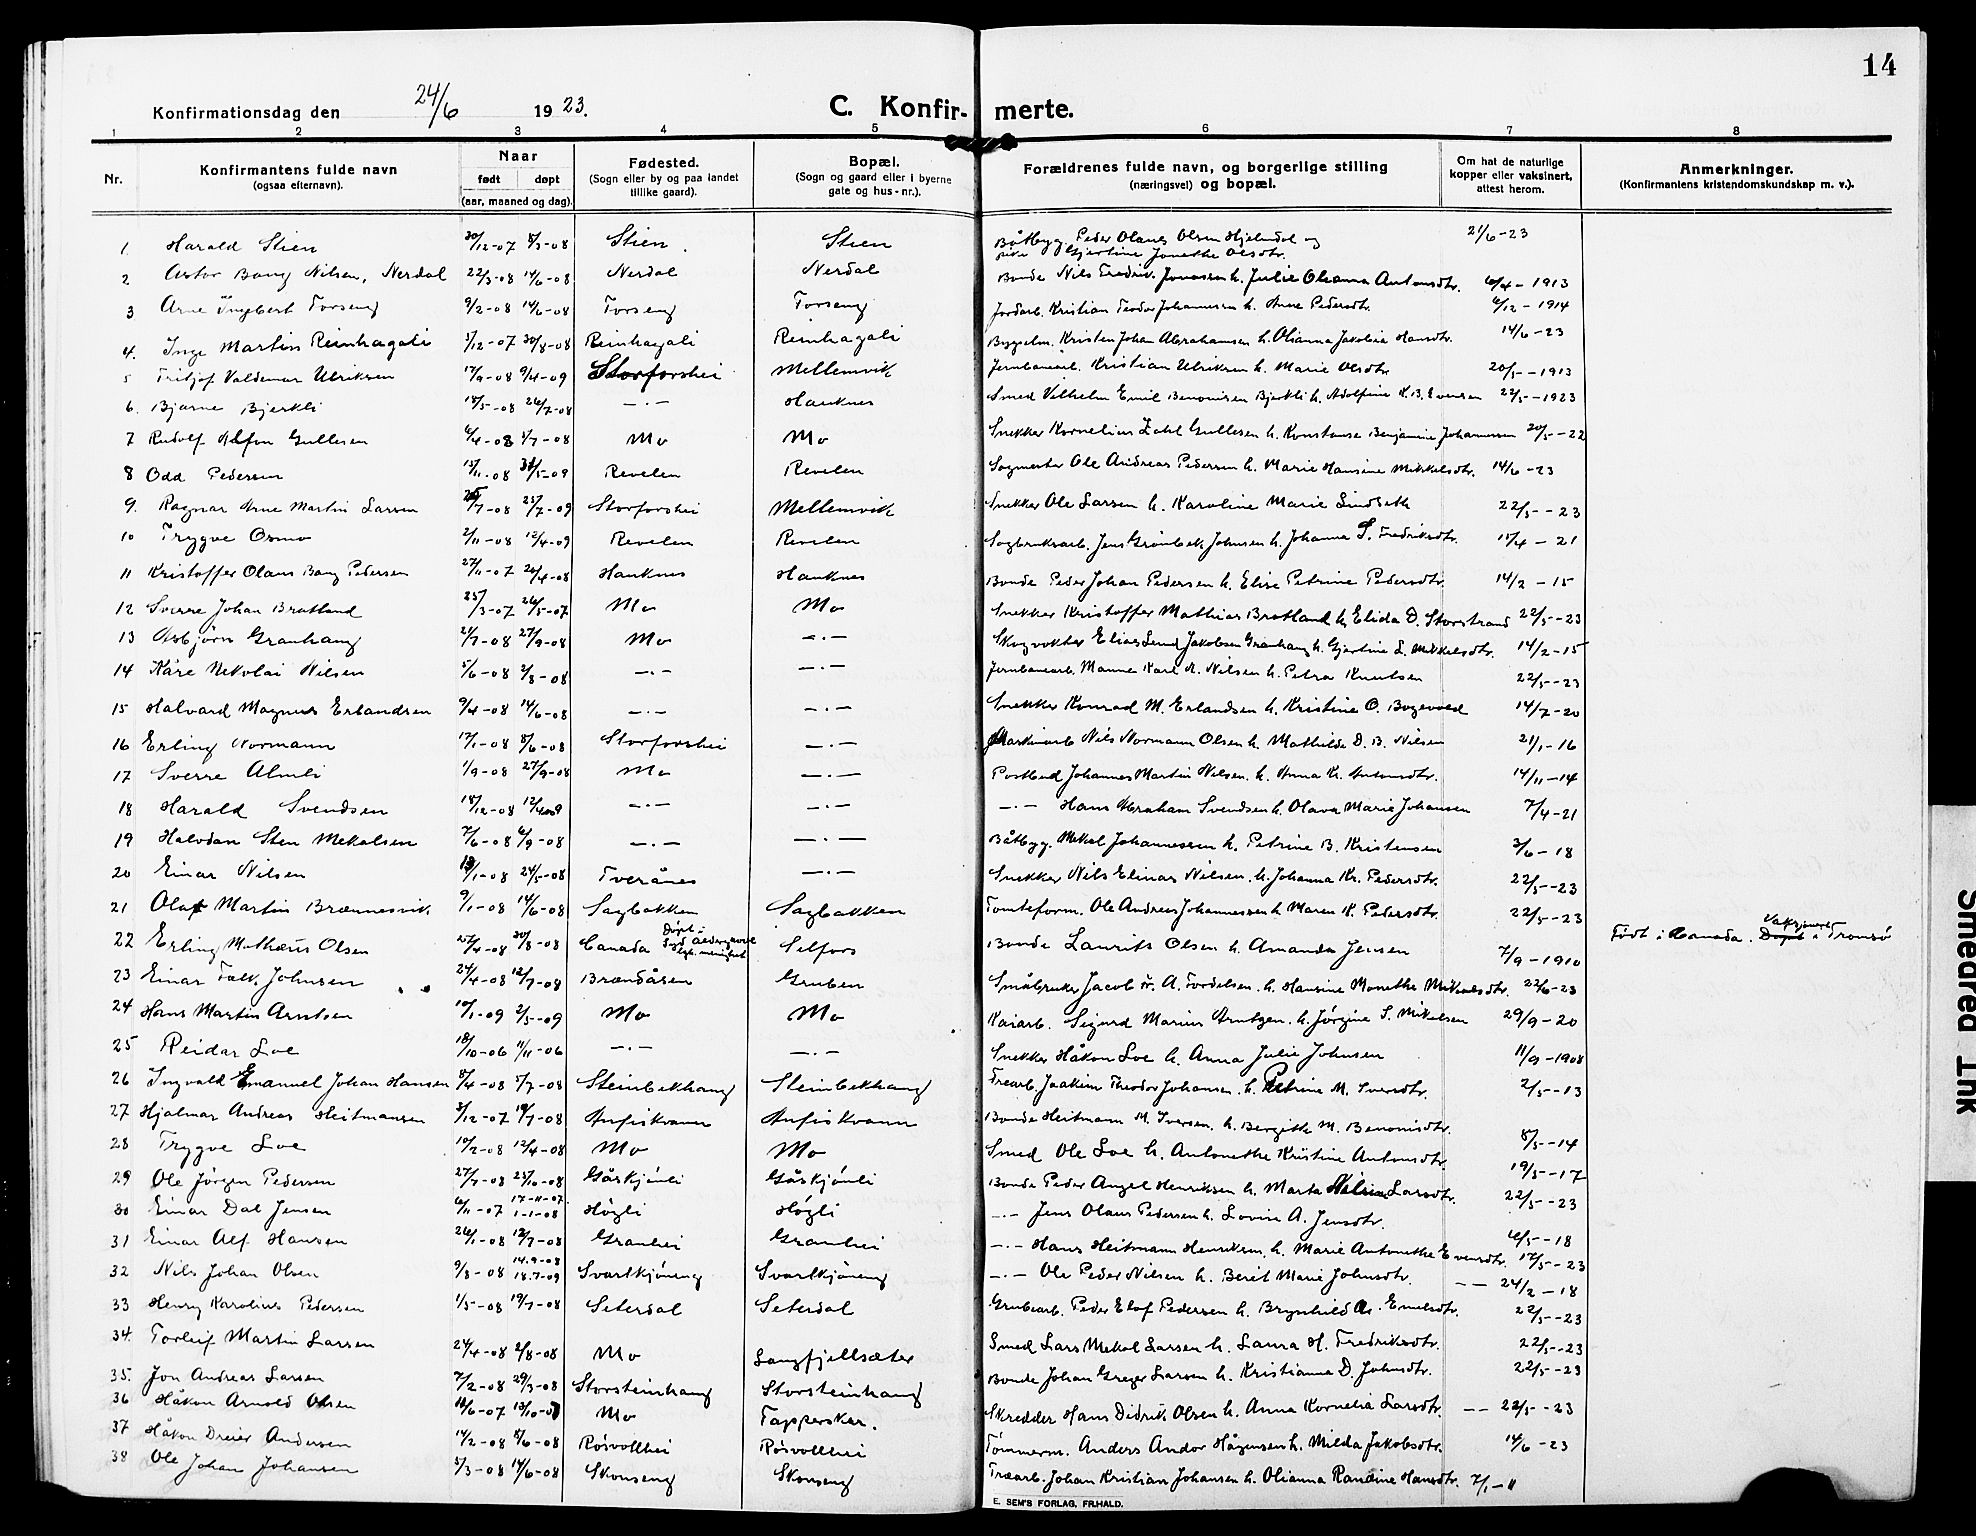 14
Konfirmationsdag den 24/6 1923.
C. Konfir- merte.
1 2 3 4 5 6 7 8
Nr.
Konfirmantens fulde navn
(ogsaa efternavn).
Naar
født døpt
(aar, maaned og dag).
Fødested.
(Sogn eller by og paa landet
tillike gaard).
Bopæl.
(Sogn og gaard eller i byerne
gate og hus-nr.).
Forældrenes fulde navn, og borgerlige stilling
(næringsvei) og bopæl.
Om hat de naturlige
kopper eller vaksinert,
attest herom.
Anmerkninger.
(Konfirmantens kristendomskundskap m. v.).
1. Harald Stien 30/12-07 8/3-08 Stien Stien Båtbyg. Peder Olaus Olsen og 21/6-23
Gjertine Jonette Olsdtr.
2 Astor Bang Nilsen, Nerdal 22/3-08 14/6-08 Nerdal Nerdal Bonde Nils Fredrik Jonassen h. Julie Oleanna Antonsdtr. 6/4-1913
3 Arne Ingebert Forseng 9/2-08 14/6-08 Forseng Forseng Jordarb. Kristian Teodor Johannesen h. Anne Pedersdtr. 6/12-1914
4. Inge Martin Reinhagali 5/12-07 30/8-08 Reinhagali Reinhagali Kristen Johan Abrahamsen h. Olianna Jakobine Hansdtr. 14/6-23
5 Fritjof Valdemar Ulriksen 17/9-08 9/4-09 Storforshei Mellemvik Jernbanearb. Kristian Ulriksen h. Marie Olsdtr. 20/5-1913
6. Bjarne Bjerkli 18/5-08 26/7-08 -.- Hauknes Smed Vilhelm Emil Benonisen Bjerkli h. Adolfine K. B. Evensen 22/5-1923
7 Rudolf Alfon Gullesen 6/4-08 5/7-08 Mo Mo Snekker Kornelius Zahl Gullesen h. Konstanse Benjamine Johannessen 20/5-22
8 Odd Pedersen 15/11-08 31/5-09 Revelen Revelen Sagmester Ole Andreas Pedersen h. Marie Hansine Mikkelsdtr. 14/6-23
9. Ragnar Arne Martin Larsen 25/7-08 25/7-09 Storforshei Mellemvik Snekker Ole Larsen h. Karoline Marie Lindseth 22/5-23
10 Trygve Osmo 2/11-08 12/4-09 Revelen Revelen Sagbruksarb. Jens Grønbek Johnsen h. Johanna S. Fredriksdtr. 15/4-21
11 Kristoffer Olaus Bang Pedersen 27/11-07 26/4-08 Hauknes Hauknes Bonde Peder Johan Pedersen h. Elise Petrine Pedersdtr. 14/2-15
12 Sverre Johan Bratland 25/3-07 26/5-07 Mo Mo Snekker Kristoffer Mathias Bratland h. Elida D. Storstrand 22/5-23
13 Asbjørn Granhaug 21/7-08 27/9-08 Mo -.- Skogvokter Elias Lund Jakobsen Granhaug h. Gjertine L. Mikkelsdtr. 14/2-15
14 Kåre Nikolai Nilsen 5/6-08 2/8-08 -.- -.- Jernbanearb. Manne Karl A. Nilsen h. Petra Knutsen 22/5-23
15 Halvard Magnus Erlandsen 9/4-08 14/6-08 -.- -.- Snekker Konrad M. Erlandsen h. Kristine O. Bogevold 14/7-20
16 Erling Normann 12/1-08 8/6-08 Storforshei -.- Maskinarb Nils Normann Olsen h. Mathilde D. B. Nilsen 21/1-16
17 Sverre Almli 1/9-08 27/9-08 Mo -.- Postbud Johannes Martin Nilsen h. Anna K. Antonsdtr. 14/11-14
18 Harald Svendsen 18/12-08 12/4-09 -.- -.- -.- Hans Abraham Svendsen h. Olava Marie Johansen 7/4-21
19 Halvdan Sten Mekalsen 7/6-08 6/9-08 -.- -.- Båtbyg. Mekal Johannessen h. Petrine B. Kristensen 3/6-18
20 Einar Nilsen 13/1-08 24/5-08 Tverånes -.- Snekker Nils Elinas Nilsen h. Johanna Kr. Pedersdtr. 22/5-23
21 Olaf Martin Brænnesvik 9/1-08 14/6-08 Sagbakken Sagbakken Tomteform. Ole Andreas Johannessen h. Maren K. Pedersdtr. 22/5-23
22 Erling Matheus Olsen 25/4-08 30/8-08 Canada Døpt i Selfors Bonde Laurits Olsen h. Amanda Jensen 7/9-1910 Født i Canada. Døpt Vaksinert i Tromsø
23 Einar Falk Johnsen 24/4-08 12/7-08 Brændåsen Gruben Småbruker Jacob A. Fordelsen h. Hansine Monethe Mikalsdtr. 22/6-23
24 Hans Martin Arntsen 10/1-09 2/5-09 Mo Mo Kaiarb. Sigurd Marius Arntzen h. Jørgine S. Mikelsen 29/9-20
25 Reidar Loe 18/10-06 11/11-06 -.- -.- Snekker Håkon Loe h. Anna Julie Johnsen 11/9-1908
26 Ingvald Emanuel Johan Hansen 8/4-08 5/7-08 Steinbekhaug Steinbekhaug Trearb. Joakim Theodor Johansen h. Petrine M. Iversdtr. 2/5-13
27 Hjalmar Andreas Heitmansen 3/12-07 19/7-08 Aufiskvann Aufiskvann Bonde Heitmann M. Iversen h. Bergitte M. Benonisdtr. 8/5-14
28 Trygve Loe 10/2-08 12/4-08 Mo Mo Smed Ole Loe h. Antonethe Kristine Antonsdtr. 19/5-17
29 Ole Jørgen Pedersen 27/7-08 25/10-08 Gåskjønli Gåskjønli Bonde Peder Angel Henriksen h. Marta Larsdtr. 22/5-23
30 Einar Dal Jensen 6/11-07 17-11-07 1-1-08 Høgli Høgli -.- Jens Olaus Pedersen h. Lovise A. Jensdtr. 6/5-18
31 Einar Alf Hansen 26/1-08 12/7-08 Granhei Granhei -.- Hans Heitmann Henriksen h. Marie Antonethe Evensdtr. 17/5-23
32 Nils Johan Olsen 9/8-08 14.9-08 18.7-09 Svartkjøneng Svartkjøneng -.- Ole Peder Nilsen h. Berit Marie Johnsdtr. -- 24/2-18
33 Henry Karolius Pedersen 1/5-08 19/7-08 Seterdal Seterdal Grubearb. Peder Elof Pedersen h. Brynhild Emelsdtr. 22/5-23
34. Torleif Martin Larsen 24/4-08 2/8-08 Mo Langfjellsæter Smed Lars Mekal Larsen h. Laura H. Fredriksdtr. 22/5-23
35. Jon Andreas Larsen 7/2-08 29/3-08 Storsteinhaug Storsteinhaug Bonde Johan Greger Larsen h. Kristianna D. Johnsdtr. 22/5-23
36 Håkon Arnold Olsen 16/6-07 13/10-07 Mo Tapperskar. Skredder Hans Didrik Olsen h. Anna Kornelia Larsdtr. -- 22/5-23
37 Håkon Dreier Andersen 14/2-08 8/6-08 Røsvollhei Røsvollhei Tømmerm. Anders Andor Hågensen h. Milda Jakobsdtr. 14/6-23
38 Ole Johan Johansen 5/3-08 14/6-08 Skonseng Skonseng Træarb. Johan Kristian Johansen h. Olianna Randine Hansdtr. 7/1-11
E. SEM'S FORLAG, FR.HALD.
Smeared Ink